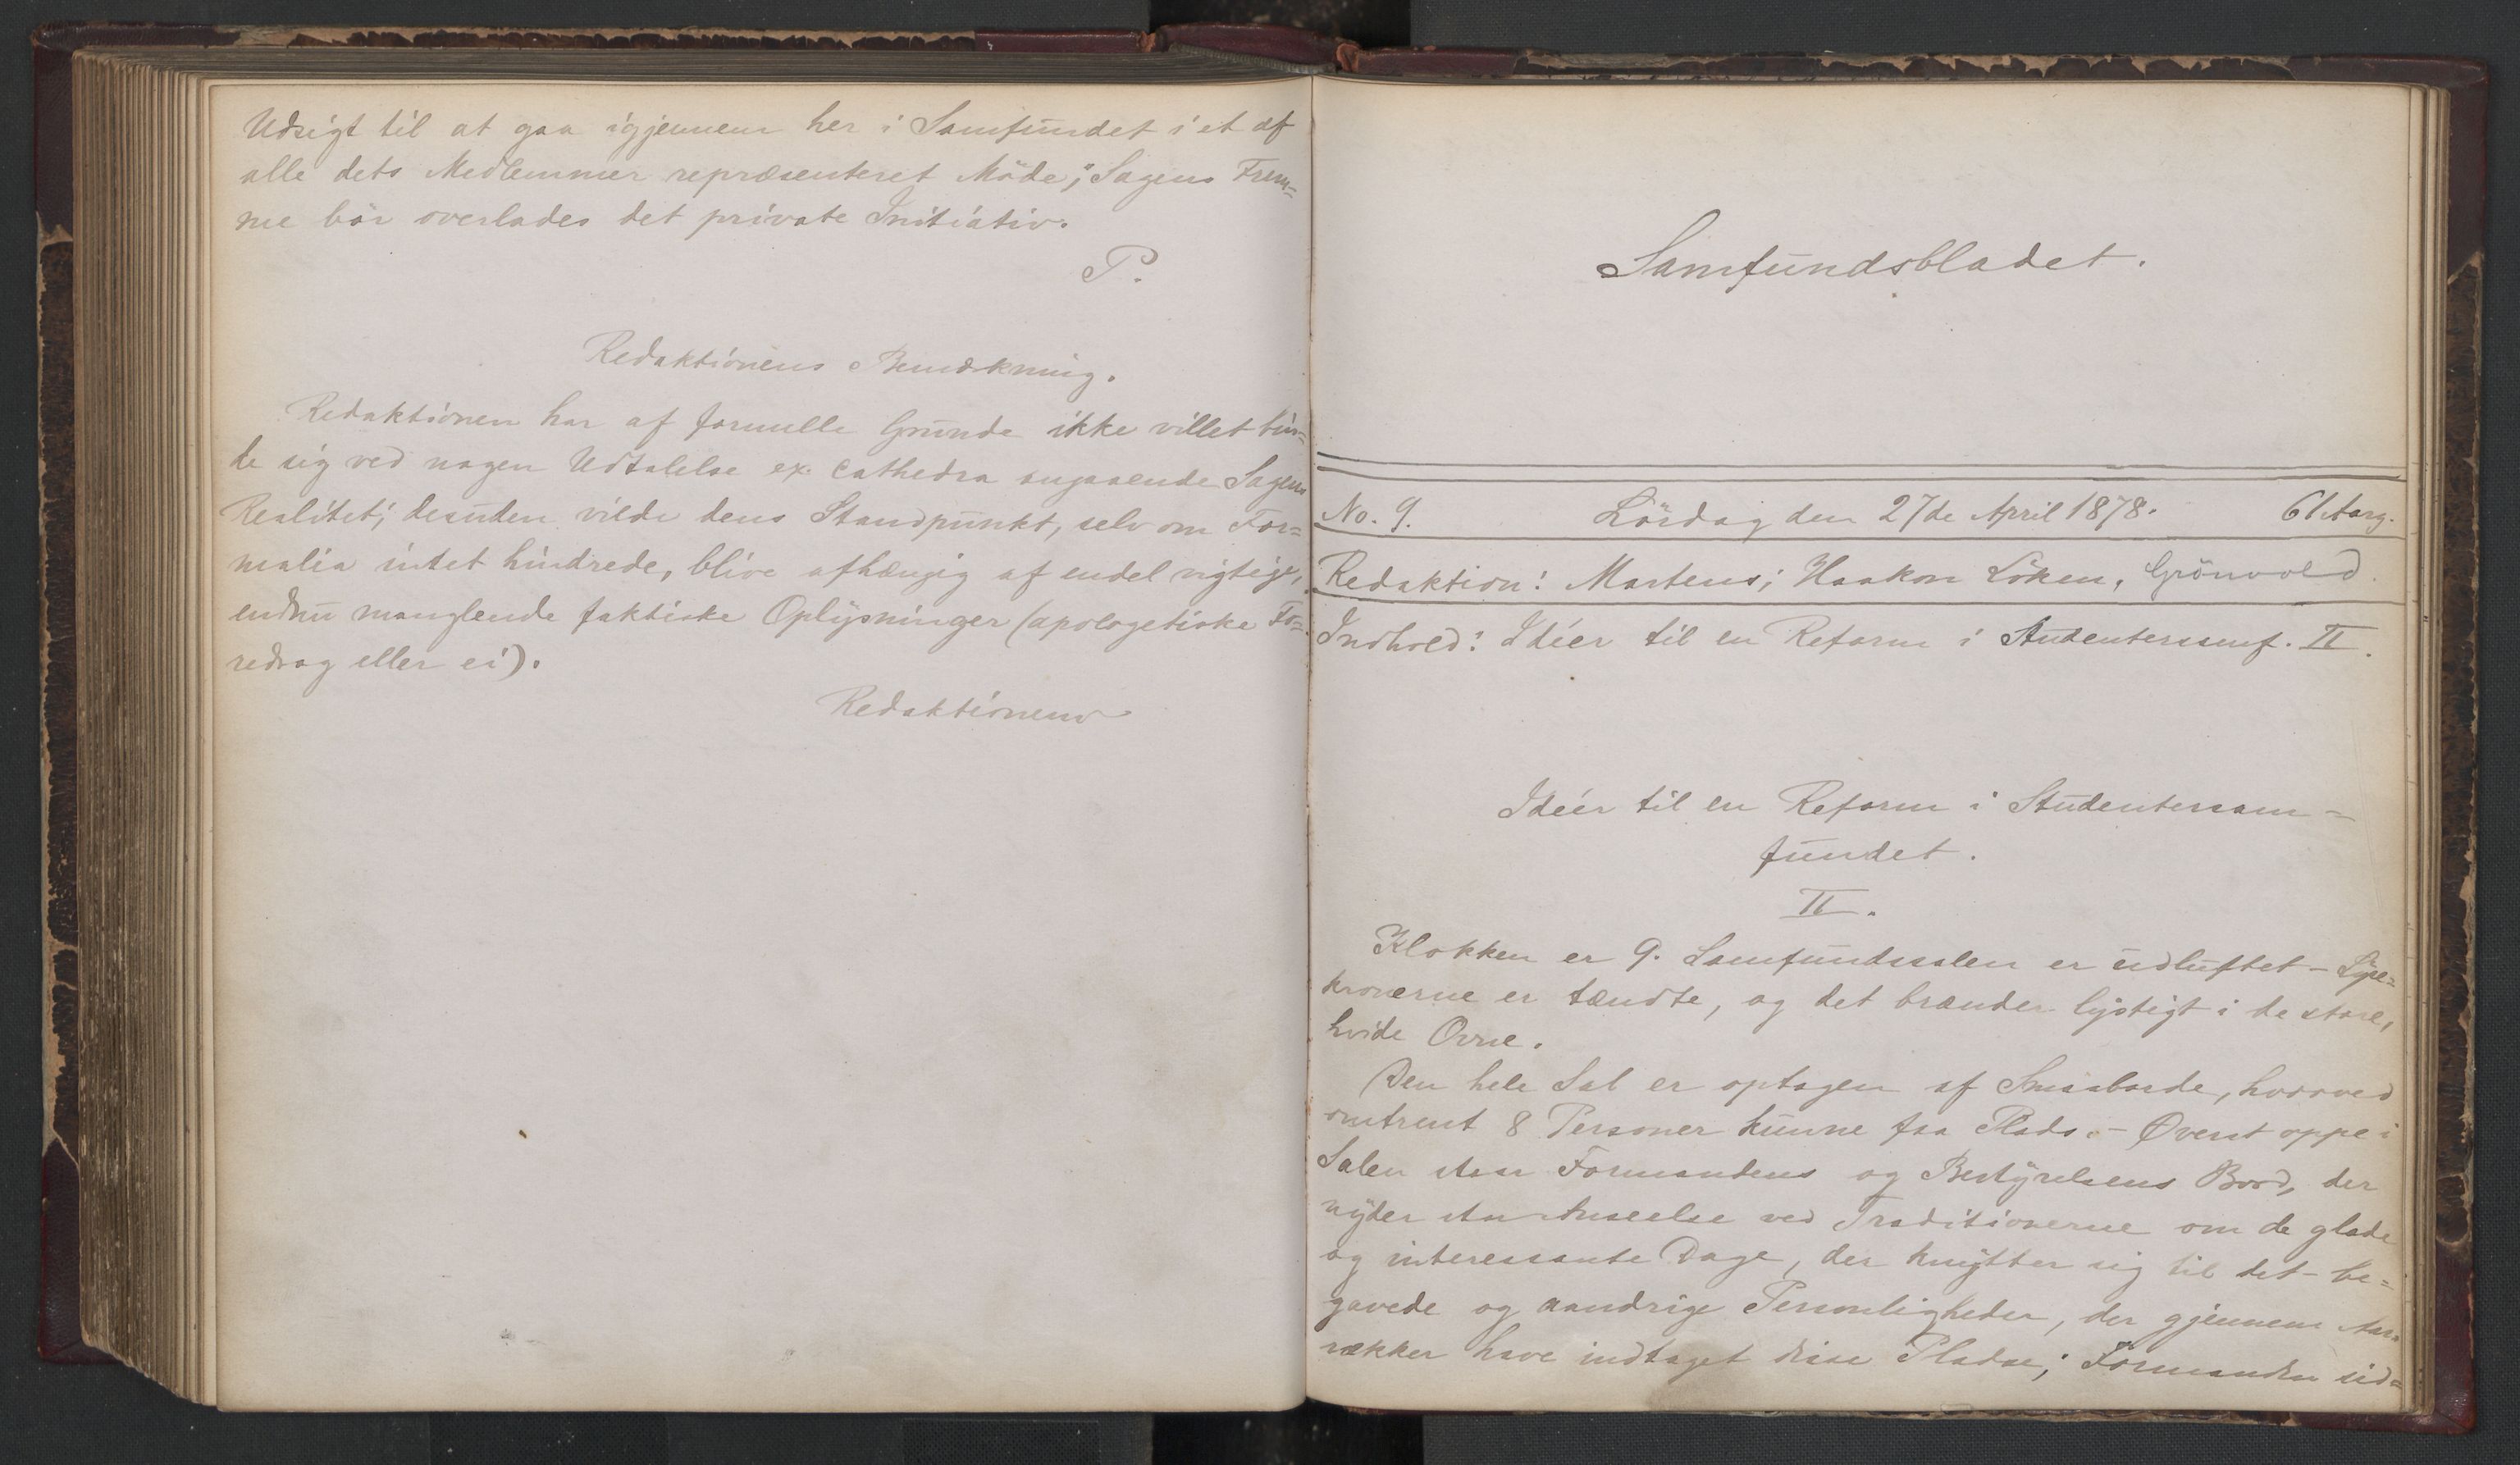 Udsigt til at gaa igjennem her i Samfundet i et af
alle dets Medlemmer repræsenteret Möde; Sagens Frem=
me bör overlades det private Initiativ.
P.
Redaktionens Bemærkning.
Redaktionen har af formelle Grunde ikke villet bin=
de sig ved nogen Udtalelse ex cathedra angaaende Sagens
Realitet; desuden vilde dens Standpunkt, selv om For=
malia intet hindrede, blive afhængig af endel vigtige,
endnu manglende faktiske Oplysninger (apologetiske Fo=
redrag eller ei).
Redaktionen
Samfundsbladet.
No. 9. Lördag den 27de April 1878. 61 Aarg.
Redaktion: Martens; Haakon Löken, Grönvold.
Indhold: Idéer til en Reform i Studentersamf. II.
Idéer til en Reform i Studentersam=
fundet.
II.
Klokken er 9. Samfundssalen er udluftet – Lyse=
kronerne er tændte, og det brænder lystigt i de store,
hvide Ovne.
Den hele Sal er optagen af Smaaborde, hvorved
omtrent 8 Personer kunne faa Plads. – Øverst oppe i
Salen staar Formandens og Bestyrelsens Bord, der
nyder Anseelse ved Traditionerne om de glade
og interessante Dage, der knytter sig til det – be=
gavede og aandrige Personligheder, der gjennem Aar=
rækker have indtaget disse Pladse; Formanden sid=